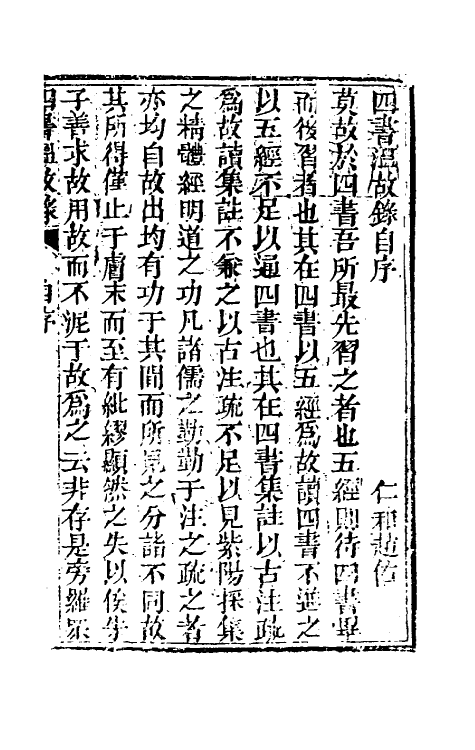 四書溫故錄自序
仁和趙佑
莫故於四書吾所最先習之者也五經則待四書畢
而後習者也其在四書以五經爲故讀四書不進之
以五經不足以通四書也其在四書集註以古注疏
爲故讀集註不參之以古注疏不足以見紫陽採集
之精體經明道之功凡諸儒之勤勤于注之疏之者
亦均自故出均有功于其間而所見之分詣不同故
其所得僅止于膚末而至有紕繆顯然之失以俟學
子善求故用故而不泥于故爲之云非存是旁羅眾
四書溫故錄 自序